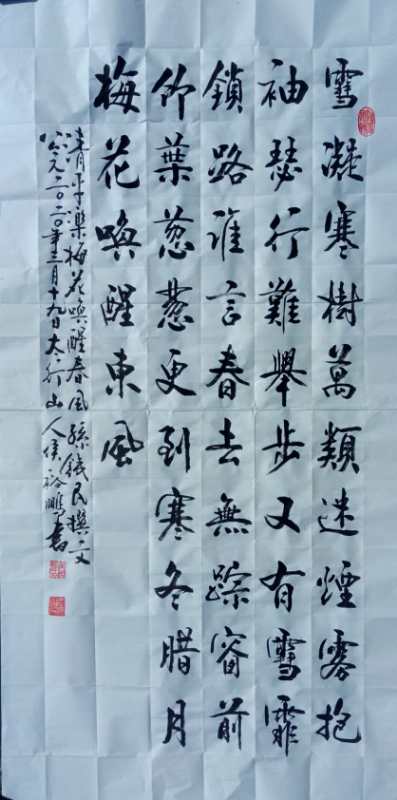 雪凝寒樹萬類迷煙霧抱
袖瑟行難舉步又有雪霏
鎖路誰言春去無踪窗前
竹葉葱葱更到寒冬腊月
梅花喚醒東風
清平樂梅花喚醒春風孫鐵民撰文
公元二〇二〇年三月十九日太行山人侯裕書